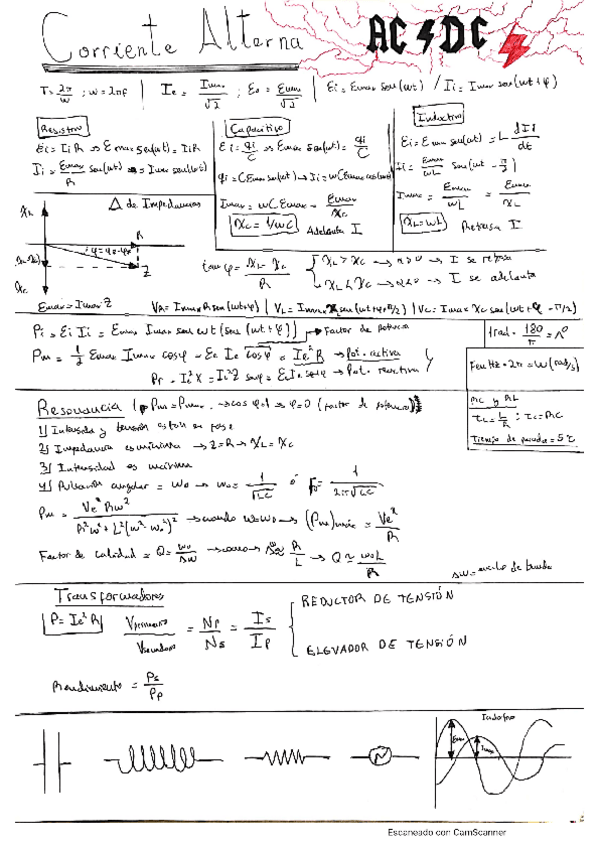 Corriente Alterna AC⚡DC
T = 2π/ω ; ω = 2πf | Ie = Imax/√2 ; Ee = Emax/√2 | Ei = Emax sen(ωt) / Ii = Imax sen(ωt+φ)
Resistivo
Ei = Ii R ⇒ Emax sen(ωt) = Ii R
Ii = Emax/R sen(ωt) ⇒ Imax sen(ωt)
Capacitivo
Ei = qi/C ⇒ Emax sen(ωt) = qi/C
qi = C Emax sen(ωt) → Ii = ωC Emax cos(ωt)
Imax = ωC Emax = Emax/Xc
Xc = 1/ωC Adelanta I
Inductivo
Ei = Emax sen(ωt) = L dIi/dt
Ii = Emax/ωL sen(ωt - π/2)
Imax = Emax/ωL = Emax/XL
XL = ωL Retrasa I
Δ de Impedancias
XL
R
Z
Xc
tan φ = XL - Xc / R
XL > Xc → → I se retrasa
XL < Xc → → I se adelanta
Emax = Imax·Z
VR = Imax R sen(ωt+φ) | VL = Imax XL sen(ωt+φ+π/2) | Vc = Imax Xc sen(ωt+φ - π/2)
Pi = Ei Ii = Emax Imax sen ωt (sen(ωt+φ)) → Factor de potencia
Pm = 1/2 Emax Imax cosφ = Ee Ie cosφ = Ie² R → Pot. activa
Pr = Ie² X = Ie² Z senφ = Ee Ie senφ → Pot. reactiva
1rad · 180/π = Λ°
F en Hz · 2π = ω (rad/s)
RC y RL
τL = L/R ; τc = RC
Tiempo de parada = 5τ
Resonancia
1) Intensidad y tensión están en fase
2) Impedancia es mínima → Z = R → XL = Xc
3) Intensidad es máxima
4) Pulsación angular = ω0 → ω0 = 1/√LC ó F0 = 1/2π√LC
Pm = Ve² Rω² / R²ω² + L²(ω² - ω0²)² → cuando ω = ω0 → (Pm)máx = Ve²/R
Factor de calidad = Q = ω0/Δω → como → Δω ≈ R/L → Q ≈ ω0L/R
Δω = ancho de banda
Transformadores
P = Ie² R
Vprimario/Vsecundario = Np/Ns = Is/Ip
REDUCTOR DE TENSIÓN
ELEVADOR DE TENSIÓN
Rendimiento = Ps/Pp
Inductivo
Emax
Imax
Escaneado con CamScanner